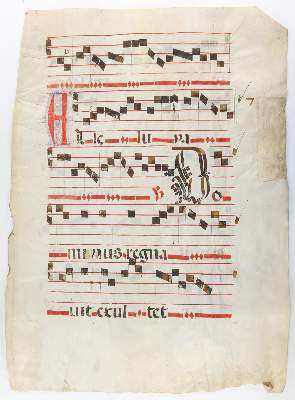 A lle lu ya
Do
minus regna
uit exul tet